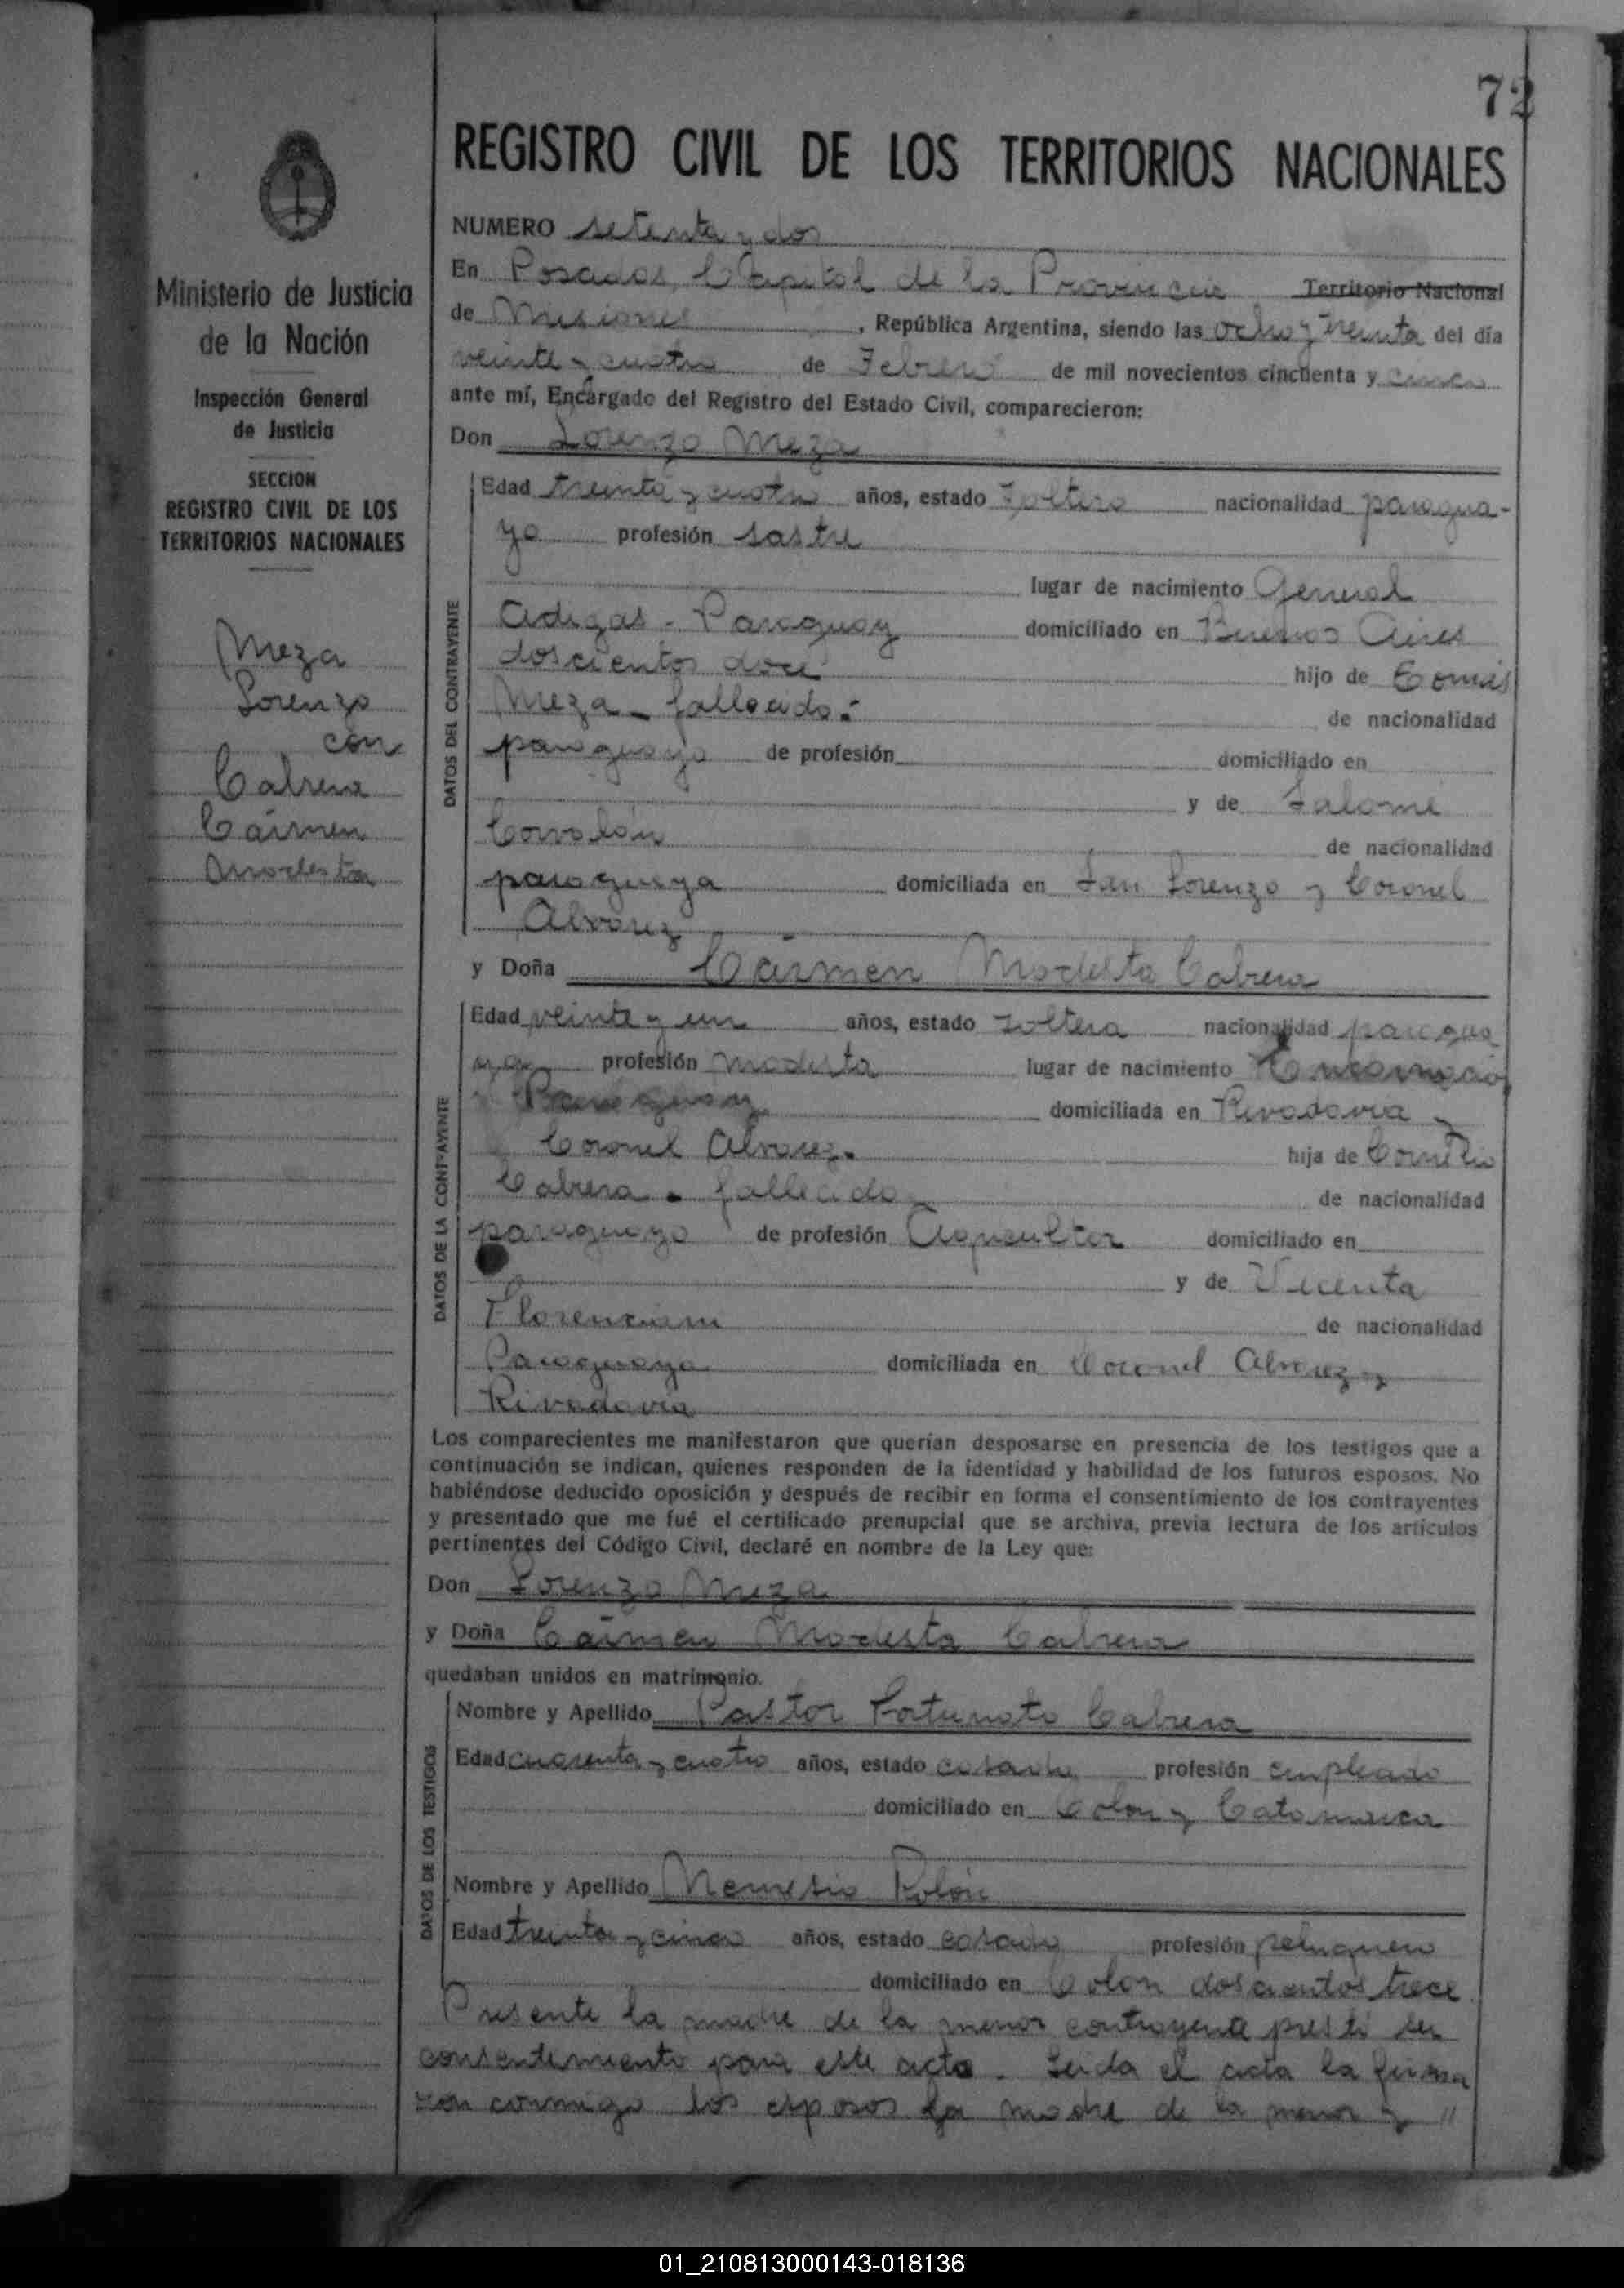 72
REGISTRO CIVIL DE LOS TERRITORIOS NACIONALES
Ministerio de Justicia
de la Nación
Inspección General
de Justicia
SECCION
REGISTRO CIVIL DE LOS
TERRITORIOS NACIONALES
Meza
Lorenzo
con
Cabrera
Cármen
Modesta
NUMERO setenta y dos
En Posadas, Capital de la Provincia Territorio Nacional
de Misiones, República Argentina, siendo las ocho y treinta del día
veinte y cuatro de Febrero de mil novecientos cincuenta y cinco
ante mí, Encargado del Registro del Estado Civil, comparecieron:
Don Lorenzo Meza
DATOS DEL CONTRAYENTE
Edad treinta y cuatro años, estado soltero nacionalidad paragua-
yo profesión sastre
lugar de nacimiento General
Artigas - Paraguay domiciliado en Buenos Aires
doscientos doce hijo de Tomás
Meza - fallecido.- de nacionalidad
paraguayo de profesión domiciliado en
y de Salomé
de nacionalidad
paraguaya domiciliada en San Lorenzo y Coronel
Alvarez
y Doña Cármen Modesta Cabrera
DATOS DE LA CONTRAYENTE
Edad veinte y un años, estado soltera nacionalidad paragua
ya profesión modista lugar de nacimiento Encarnación
Paraguay domiciliada en Rivadavia y
Coronel Alvarez. hija de Cornelio
Cabrera - fallecido de nacionalidad
paraguayo de profesión Agricultor domiciliado en
y de Vicenta
Florenciani de nacionalidad
Paraguaya domiciliada en Coronel Alvarez y
Rivadavia
Los comparecientes me manifestaron que querían desposarse en presencia de los testigos que a
continuación se indican, quienes responden de la identidad y habilidad de los futuros esposos. No
habiéndose deducido oposición y después de recibir en forma el consentimiento de los contrayentes
y presentado que me fué el certificado prenupcial que se archiva, previa lectura de los artículos
pertinentes del Código Civil, declaré en nombre de la Ley que:
Don Lorenzo Meza
y Doña Cármen Modesta Cabrera
quedaban unidos en matrimonio.
DATOS DE LOS TESTIGOS
Nombre y Apellido Pastor Fortunato Cabrera
Edad cuarenta y cuatro años, estado casado profesión empleado
domiciliado en Colon y Catamarca
Nombre y Apellido Nemesio Rolón
Edad treinta y cinco años, estado casado profesión peluquero
domiciliado en Colon doscientos trece
Presente la madre de la menor contrayente prestó su
consentimiento para este acto. Leida el acta la firma
ron conmigo los esposos la madre de la menor y "
01_210813000143-018136